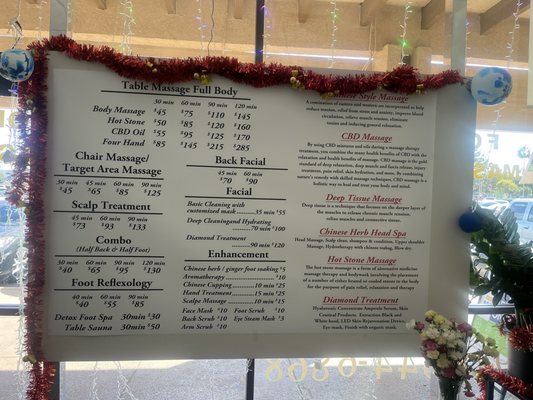 Table Massage Full Body
30 min 60 min 90 min 120 min
Body Massage $45 $75 $110 $145
Hot Stone $50 $85 $120 $160
CBD Oil $55 $95 $125 $170
Four Hand $85 $145 $215 $285
Chair Massage/
Target Area Massage
30 min 45 min 60 min 90 min
$45 $65 $85 $125
Scalp Treatment
45 min 60 min 90 min
$73 $93 $133
Combo
(Half Back & Half Foot)
30 min 60 min 90 min 120 min
$40 $65 $95 $130
Foot Reflexology
40 min 60 min 90 min
$40 $55 $85
Detox Foot Spa 30min $30
Table Sauna 30min $50
Back Facial
45 min 60 min
$70 $90
Facial
Basic Cleaning with
customized mask 35 min $55
Deep Cleaning and Hydrating
70 min $100
Diamond Treatment
90 min $120
Enhancement
Chinese herb / ginger foot soaking $5
Aromatherapy $10
Chinese Cupping 10 min $25
Hand Treatment 15 min $25
Scalpe Massage 10 min $15
Face Mask $10 Foot Scrub $10
Back Scrub $10 Eye Steam Mask $3
Arm Scrub $10
Chinese Style Massage
A combination of tuina and
reduce tension, relief from stress and anxiety; improve blood
circulation, relieve muscle tension, eliminate
toxins and inducing general relaxation.
CBD Massage
By using CBD mixtures and oils during a massage therapy
treatment, you combine the many health benefits of CBD with the
relaxation and health benefits of massage. CBD massage is the gold
standard of deep relaxation, deep muscle and fascia release, injury
treatment, pain relief, skin hydration, and more. By combining
nature's remedy with skilled massage techniques, CBD massage is a
holistic way to heal and treat your body and mind.
Deep Tissue Massage
Deep tissue is a technique that focuses on the deeper layers of
the muscles to release chronic muscle tension,
other muscles and connective tissues.
Chinese Herb Head Spa
Head Massage, Scalp clean, shampoo & condition, Upper shoulder
Massage, Hydrotherapy with chinese teabag, Blow dry.
Hot Stone Massage
The hot stone massage is a form of alternative medicine
massage therapy and bodywork involving the placement
of a number of either heated or cooled stones to the body
for the purpose of pain relief, relaxation and therapy
Diamond Treatment
Hyaluronic Concentrate Ampoule Serum, Skin
Control Products. Extraction Black and
White head, LED Skin Rejuvenation Down,
Eye mask, Finish with organic mask